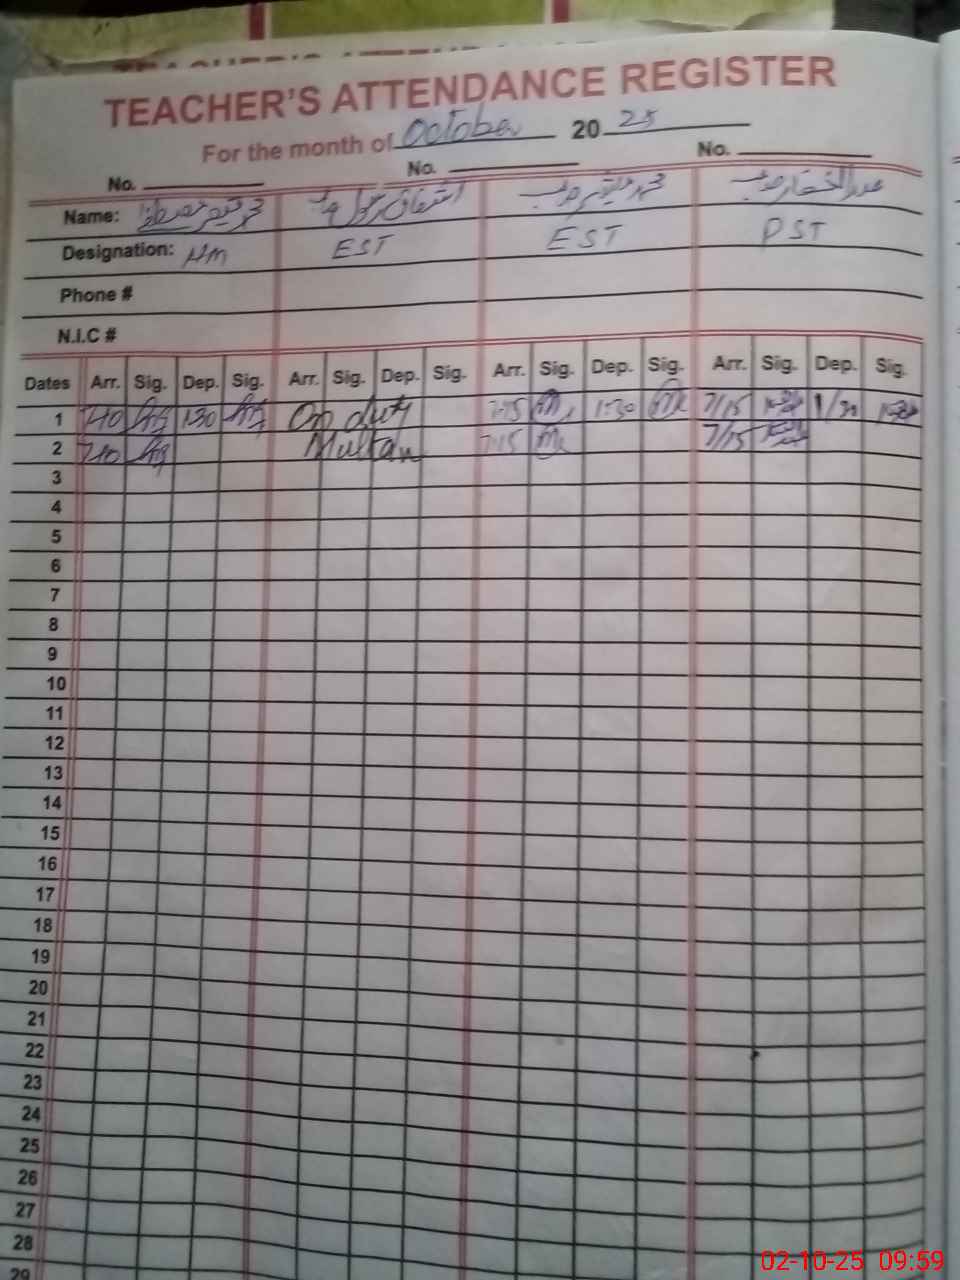 TEACHER'S ATTENDANCE REGISTER
For the month of October 20 25
No. No. No.
Name: محمد قیصر مصطفیٰ اشفاق رسول صاحب محمد صاحب عبدالغفار صاحب
Designation: HM EST EST PST
Phone #
N.I.C #
Dates Arr. Sig. Dep. Sig. Arr. Sig. Dep. Sig. Arr. Sig. Dep. Sig. Arr. Sig. Dep. Sig.
1 740 130 On duty 7:15 1:30 7/15 1/30
2 740 Multan 7:15 7/15
3
4
5
6
7
8
9
10
11
12
13
14
15
16
17
18
19
20
21
22
23
24
25
26
27
28
29
02-10-25 09:59